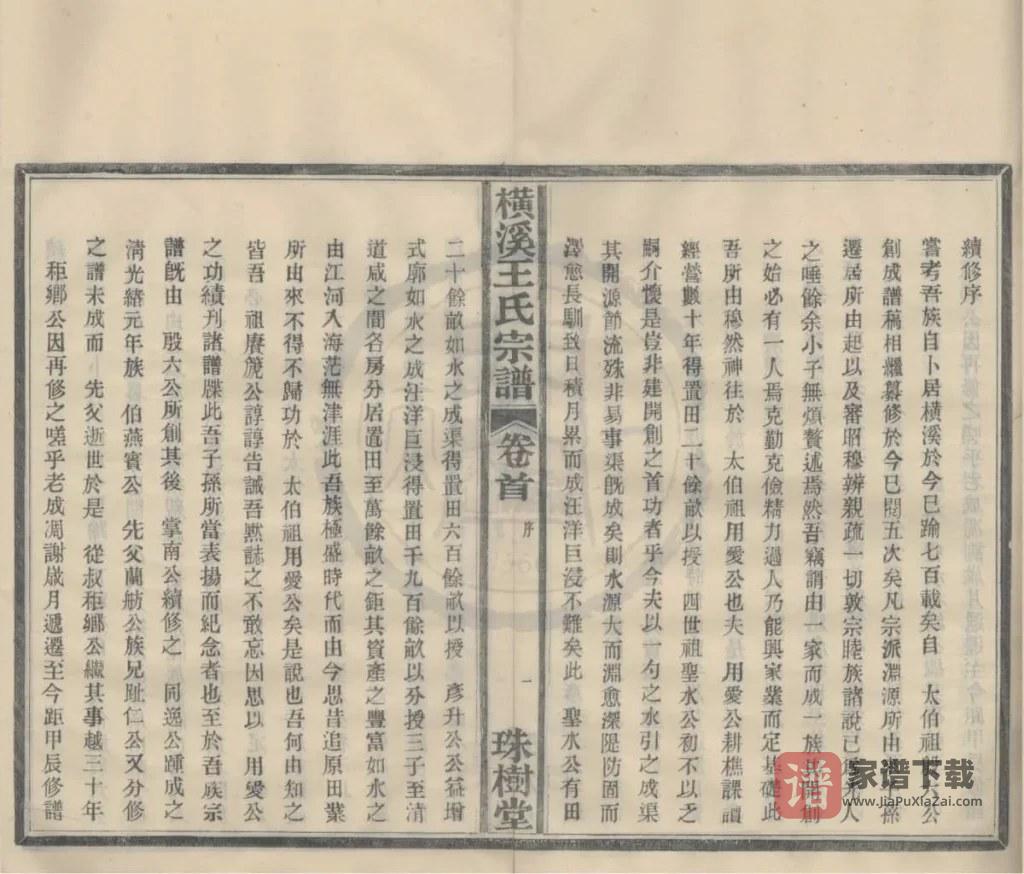 續修序
嘗考吾族自卜居橫溪於今已踰七百載矣自　太伯祖 公
創成譜稿相繼纂修於今已閱五次矣凡宗派淵源所由 孫
遷居所由起以及審昭穆辨親疏一切敦宗睦族諸說已 人
之唾餘余小子無煩贅述焉然吾竊謂由一家而成一族 開創
之始必有一人焉克勤克儉精力過人乃能興家業而定基礎此
吾所由穆然神往於　太伯祖用愛公也夫　用愛公耕樵課讀
經營數十年得置田二十餘畝以授　四世祖聖水公初不以乏
嗣介懷是豈非建開創之首功者乎今夫以一勺之水引之成渠
其開源節流殊非易事渠既放矣則水源大而淵愈深隄防固而
澤愈長馴致日積月累而成汪洋巨浸不難矣此　聖水公有田
橫溪王氏宗譜
卷首
序
一
珠樹堂
二十餘畝如水之成渠得置田六百餘畝以授　彥升公公益增
式廓如水之成汪洋巨浸得置田千九百餘畝以分授三子至清
道咸之間各房分居置田至萬餘畝之鉅其資產之豐富如水之
由江河入海茫無津涯此吾族極盛時代而由今思昔追原田業
所由來不得不歸功於　太伯祖用愛公矣是說也吾何由知之
皆吾　祖賡篪公諄諄告誡吾默誌之不敢忘因思以　用愛公
之功績刊諸譜牒此吾子孫所當表揚而紀念者也至於吾族宗
譜既由　殷六公所創其後　掌南公續修之　同逸公踵成之
清光緒元年族　伯燕賓公　先父蘭舫公族兄趾仁公又分修
之譜未成而　先父逝世於是　從叔秬鄉公繼其事越三十年
秬鄉公因再修之嗟乎老成凋謝歲月遞遷至今距甲辰修譜
譜
家谱下载
www.JiaPuXiaZai.com